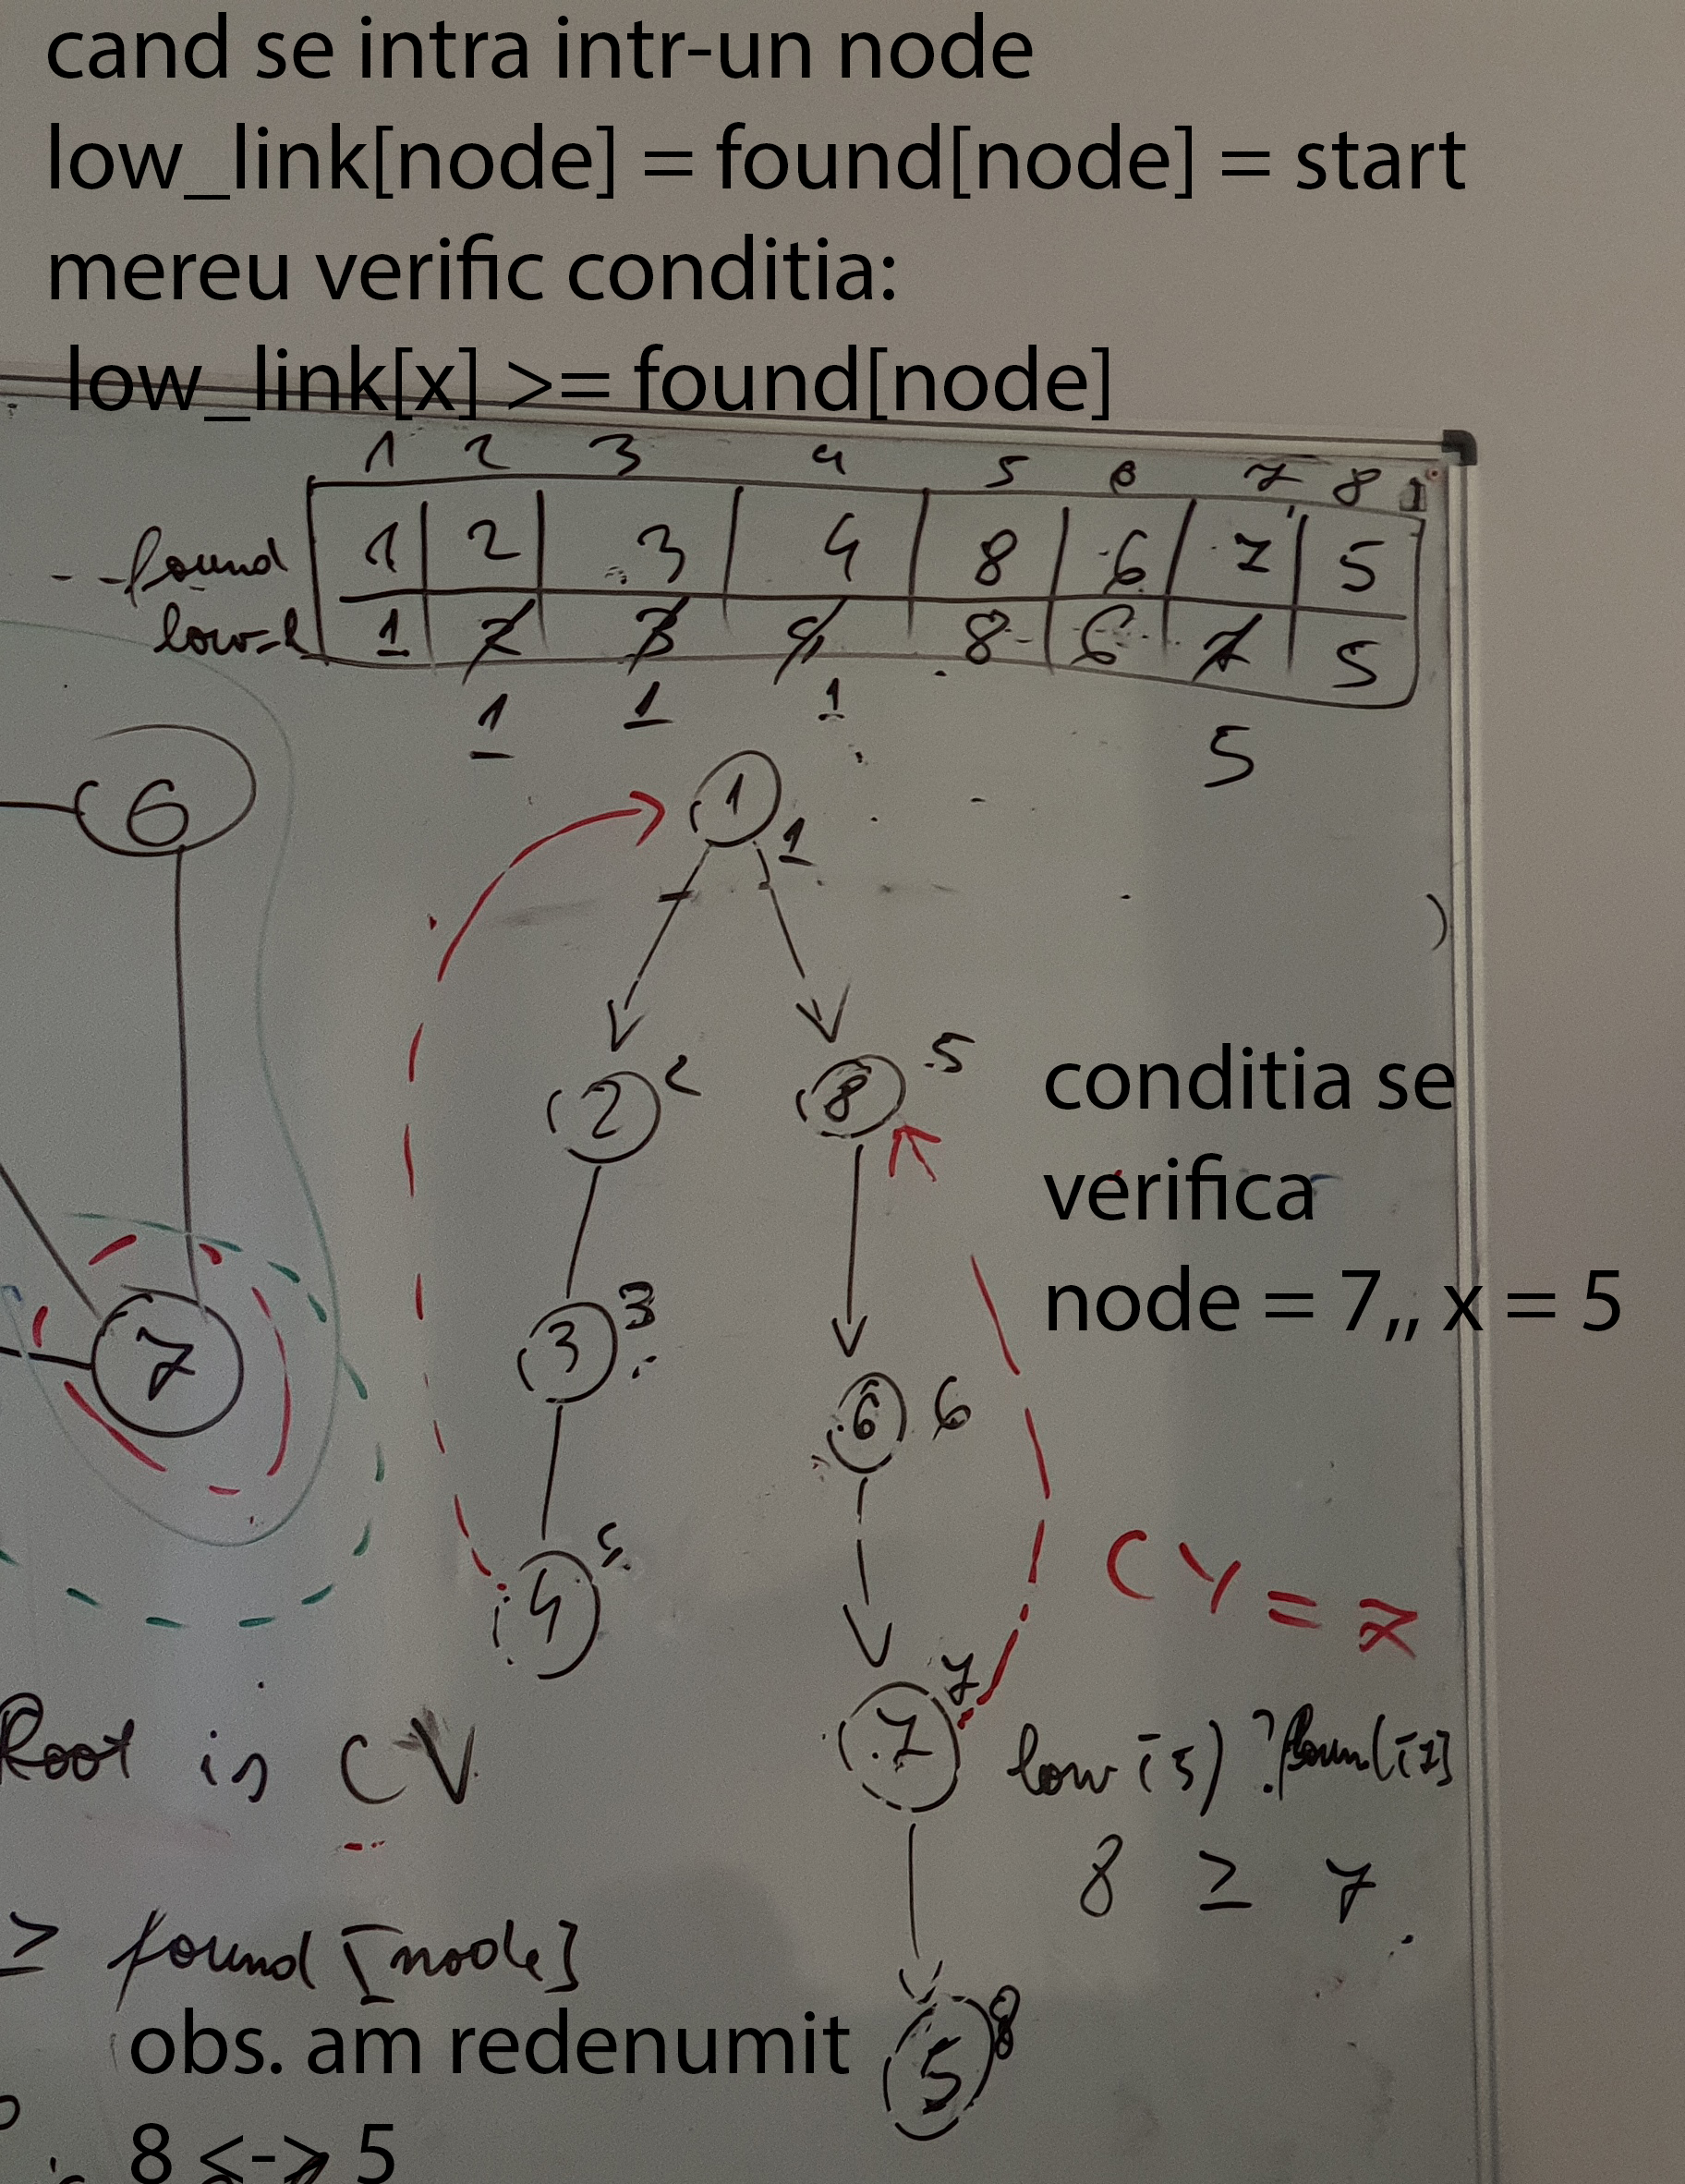 cand se intra intr-un node
low_link[node] = found[node] = start
mereu verific conditia:
low_link[x] >= found[node]
1 2 3 4 5 6 7 8
found 1 2 3 4 8 6 7 5
low-l 1 2 3 4 8 6 7 5
1 1 1 5
6
1
1
2
2
8
5
conditia se
verifica
node = 7,, x = 5
7
3
3
6
6
4
CY = 7
Root is CV
7
7
low [5] ? found [7]
8 ≥ 7
≥ found [node]
5
8
obs. am redenumit
8 <-> 5